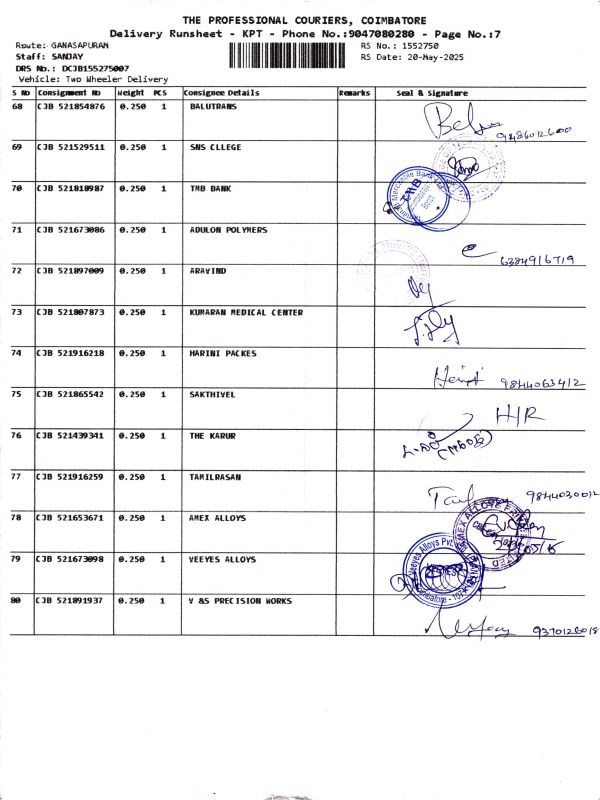 THE PROFESSIONAL COURIERS, COIMBATORE
Delivery Runsheet - KPT - Phone No.:9047080280 - Page No.:7
Route: GANASAPURAM RS No.: 1552750
Staff: SANJAY RS Date: 20-May-2025
DRS No.: DCJB155275007
Vehicle: Two Wheeler Delivery
S No Consignment No Weight PCS Consignee Details Remarks Seal & Signature
68 CJB 521854876 0.250 1 BALUTRANS
69 CJB 521529511 0.250 1 SNS CLLEGE
70 CJB 521818987 0.250 1 TMB BANK
TMB
71 CJB 521673086 0.250 1 ADULON POLYMERS
6384916719
72 CJB 521897009 0.250 1 ARAVIND
73 CJB 521807873 0.250 1 KUMARAN MEDICAL CENTER
74 CJB 521916218 0.250 1 HARINI PACKES
9844063412
75 CJB 521865542 0.250 1 SAKTHIVEL
H/R
76 CJB 521439341 0.250 1 THE KARUR
77 CJB 521916259 0.250 1 TAMILRASAN
78 CJB 521653671 0.250 1 AMEX ALLOYS
79 CJB 521673098 0.250 1 VEEYES ALLOYS
80 CJB 521891937 0.250 1 V &S PRECISION WORKS